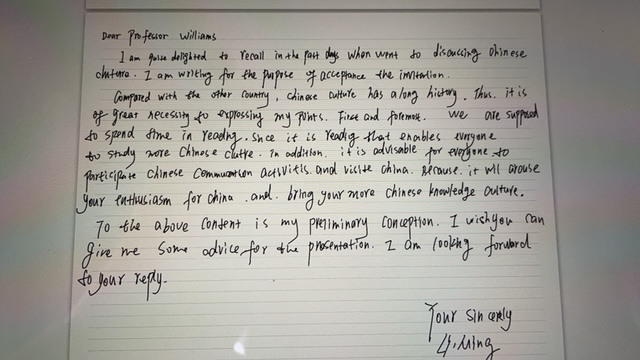 Dear Professor Williams
I am quise delighted to recall in the past days when went to discussing Chinese
cluture. I am writing for the purpose of acceptance the invitation.
Compared with the other country, Chinese culture has along history. Thus. it is
of great necessity to expressing my points. First and foremost. we are supposed
to spend time in reading. Since it is readig that enables everyone
to study more Chinese clutre. in addition. it is advisable for everyone to
participate Chinese Communication activitis. and visite china. Because. it will arouse
your enthusiasm for china. and. bring your more Chinese knowledge culture.
To the above content is my preliminary conception. I wish you can
give me some advice for the presentation. I am lookng forward
to your reply.
Your sincerely
Li Ming